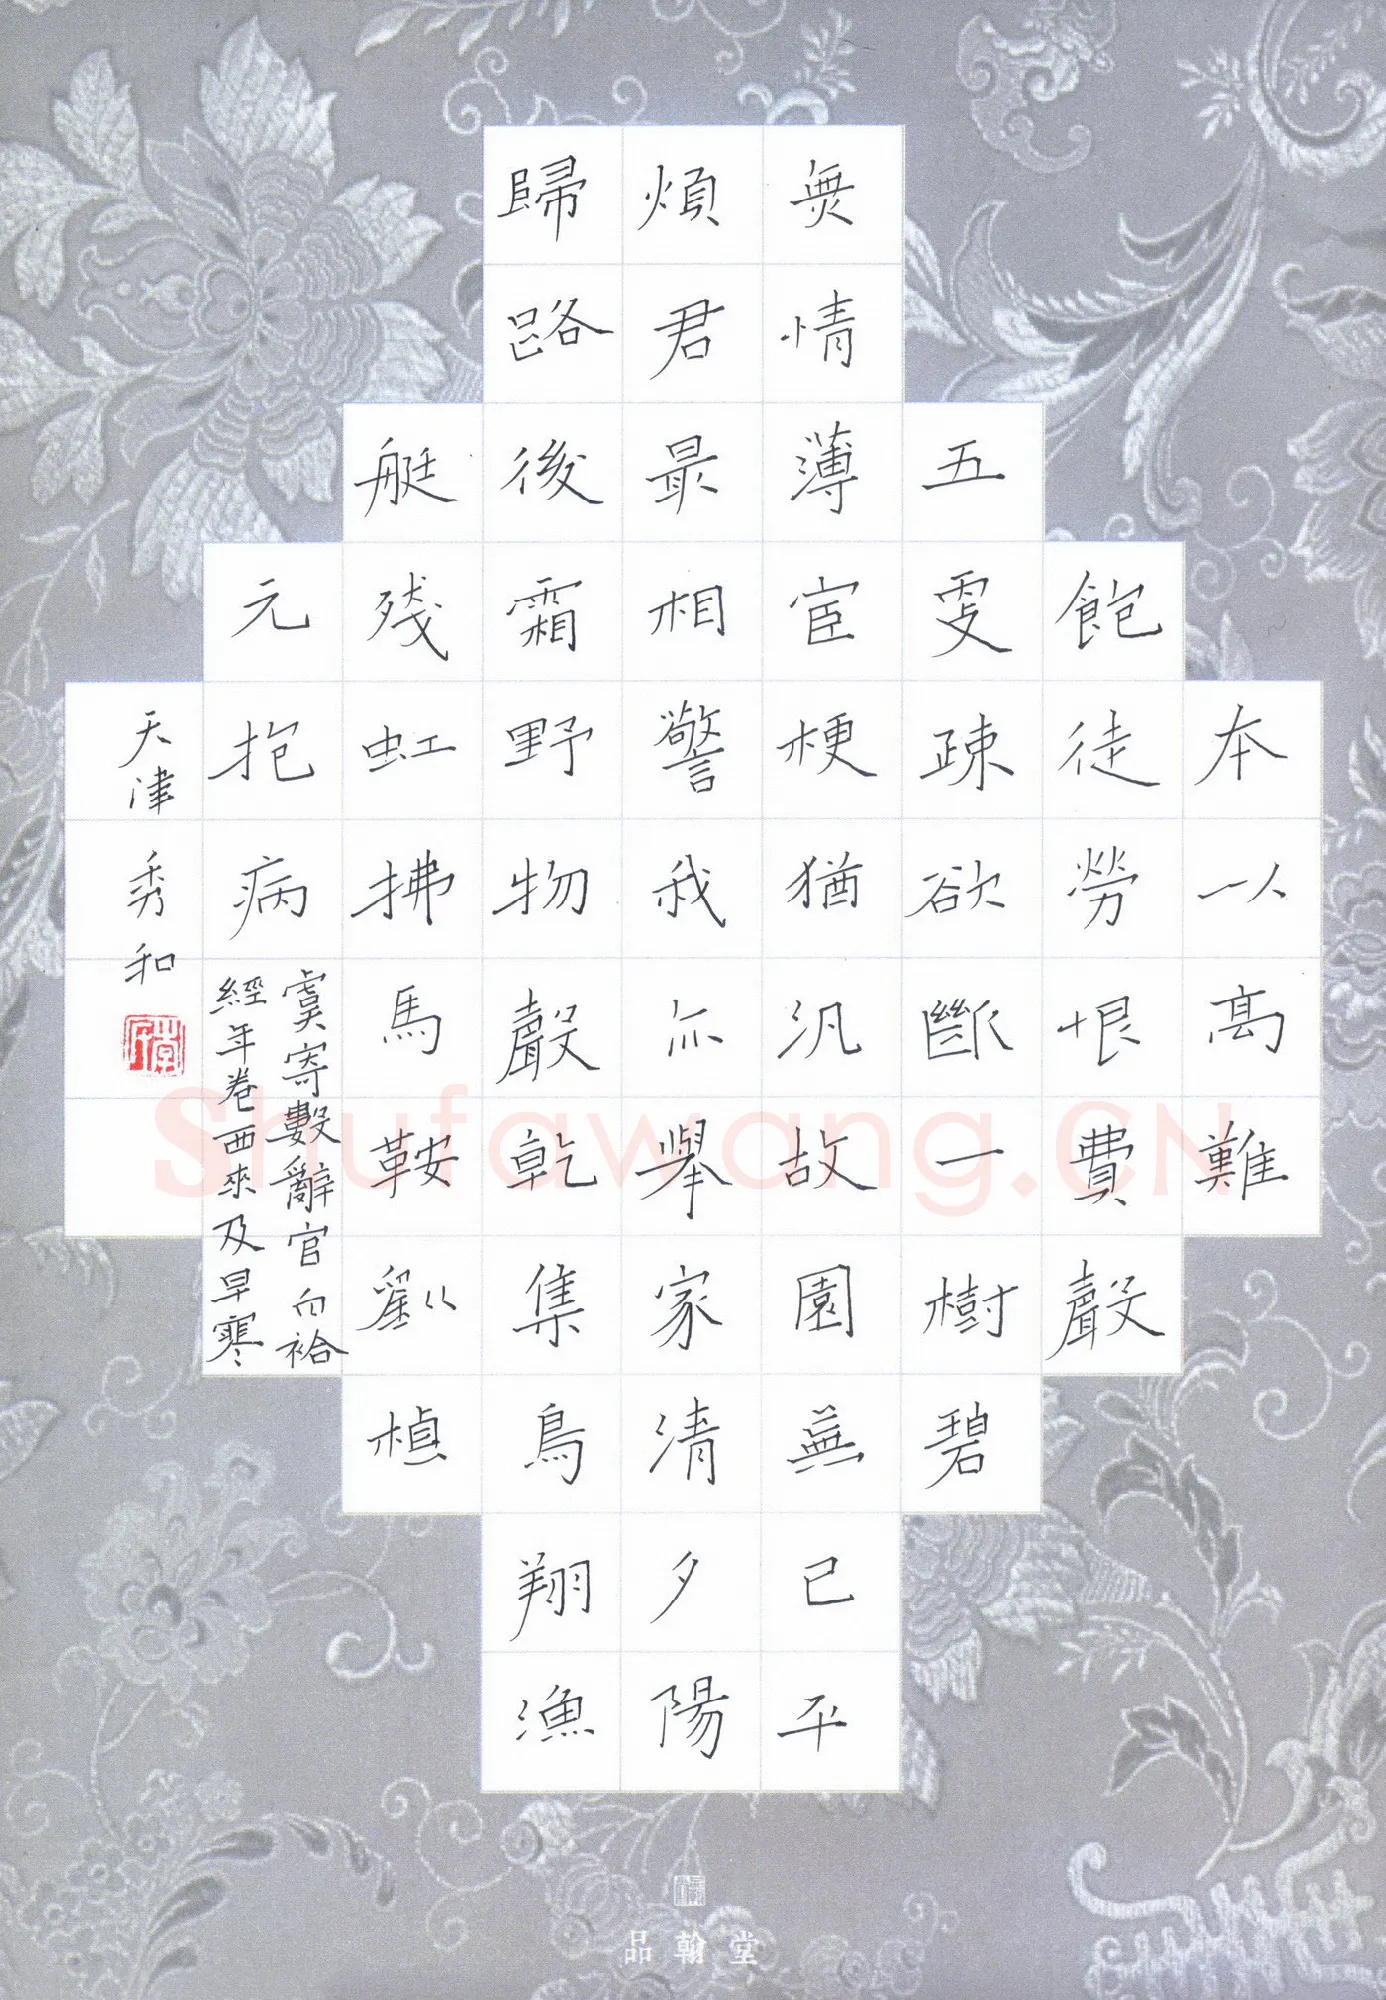 本以高難
飽徒勞恨費聲
五更疎欲斷一樹碧
無情薄宦梗猶汎故園蕪已平
煩君最相警我亦舉家清夕陽
歸路後霜野物聲乾集鳥翔漁
艇殘虹拂馬鞍劉楨
元抱病
虞寄數辭官白袷
經年卷西來及早寒
天津秀和
Shufawang.CN
品翰堂